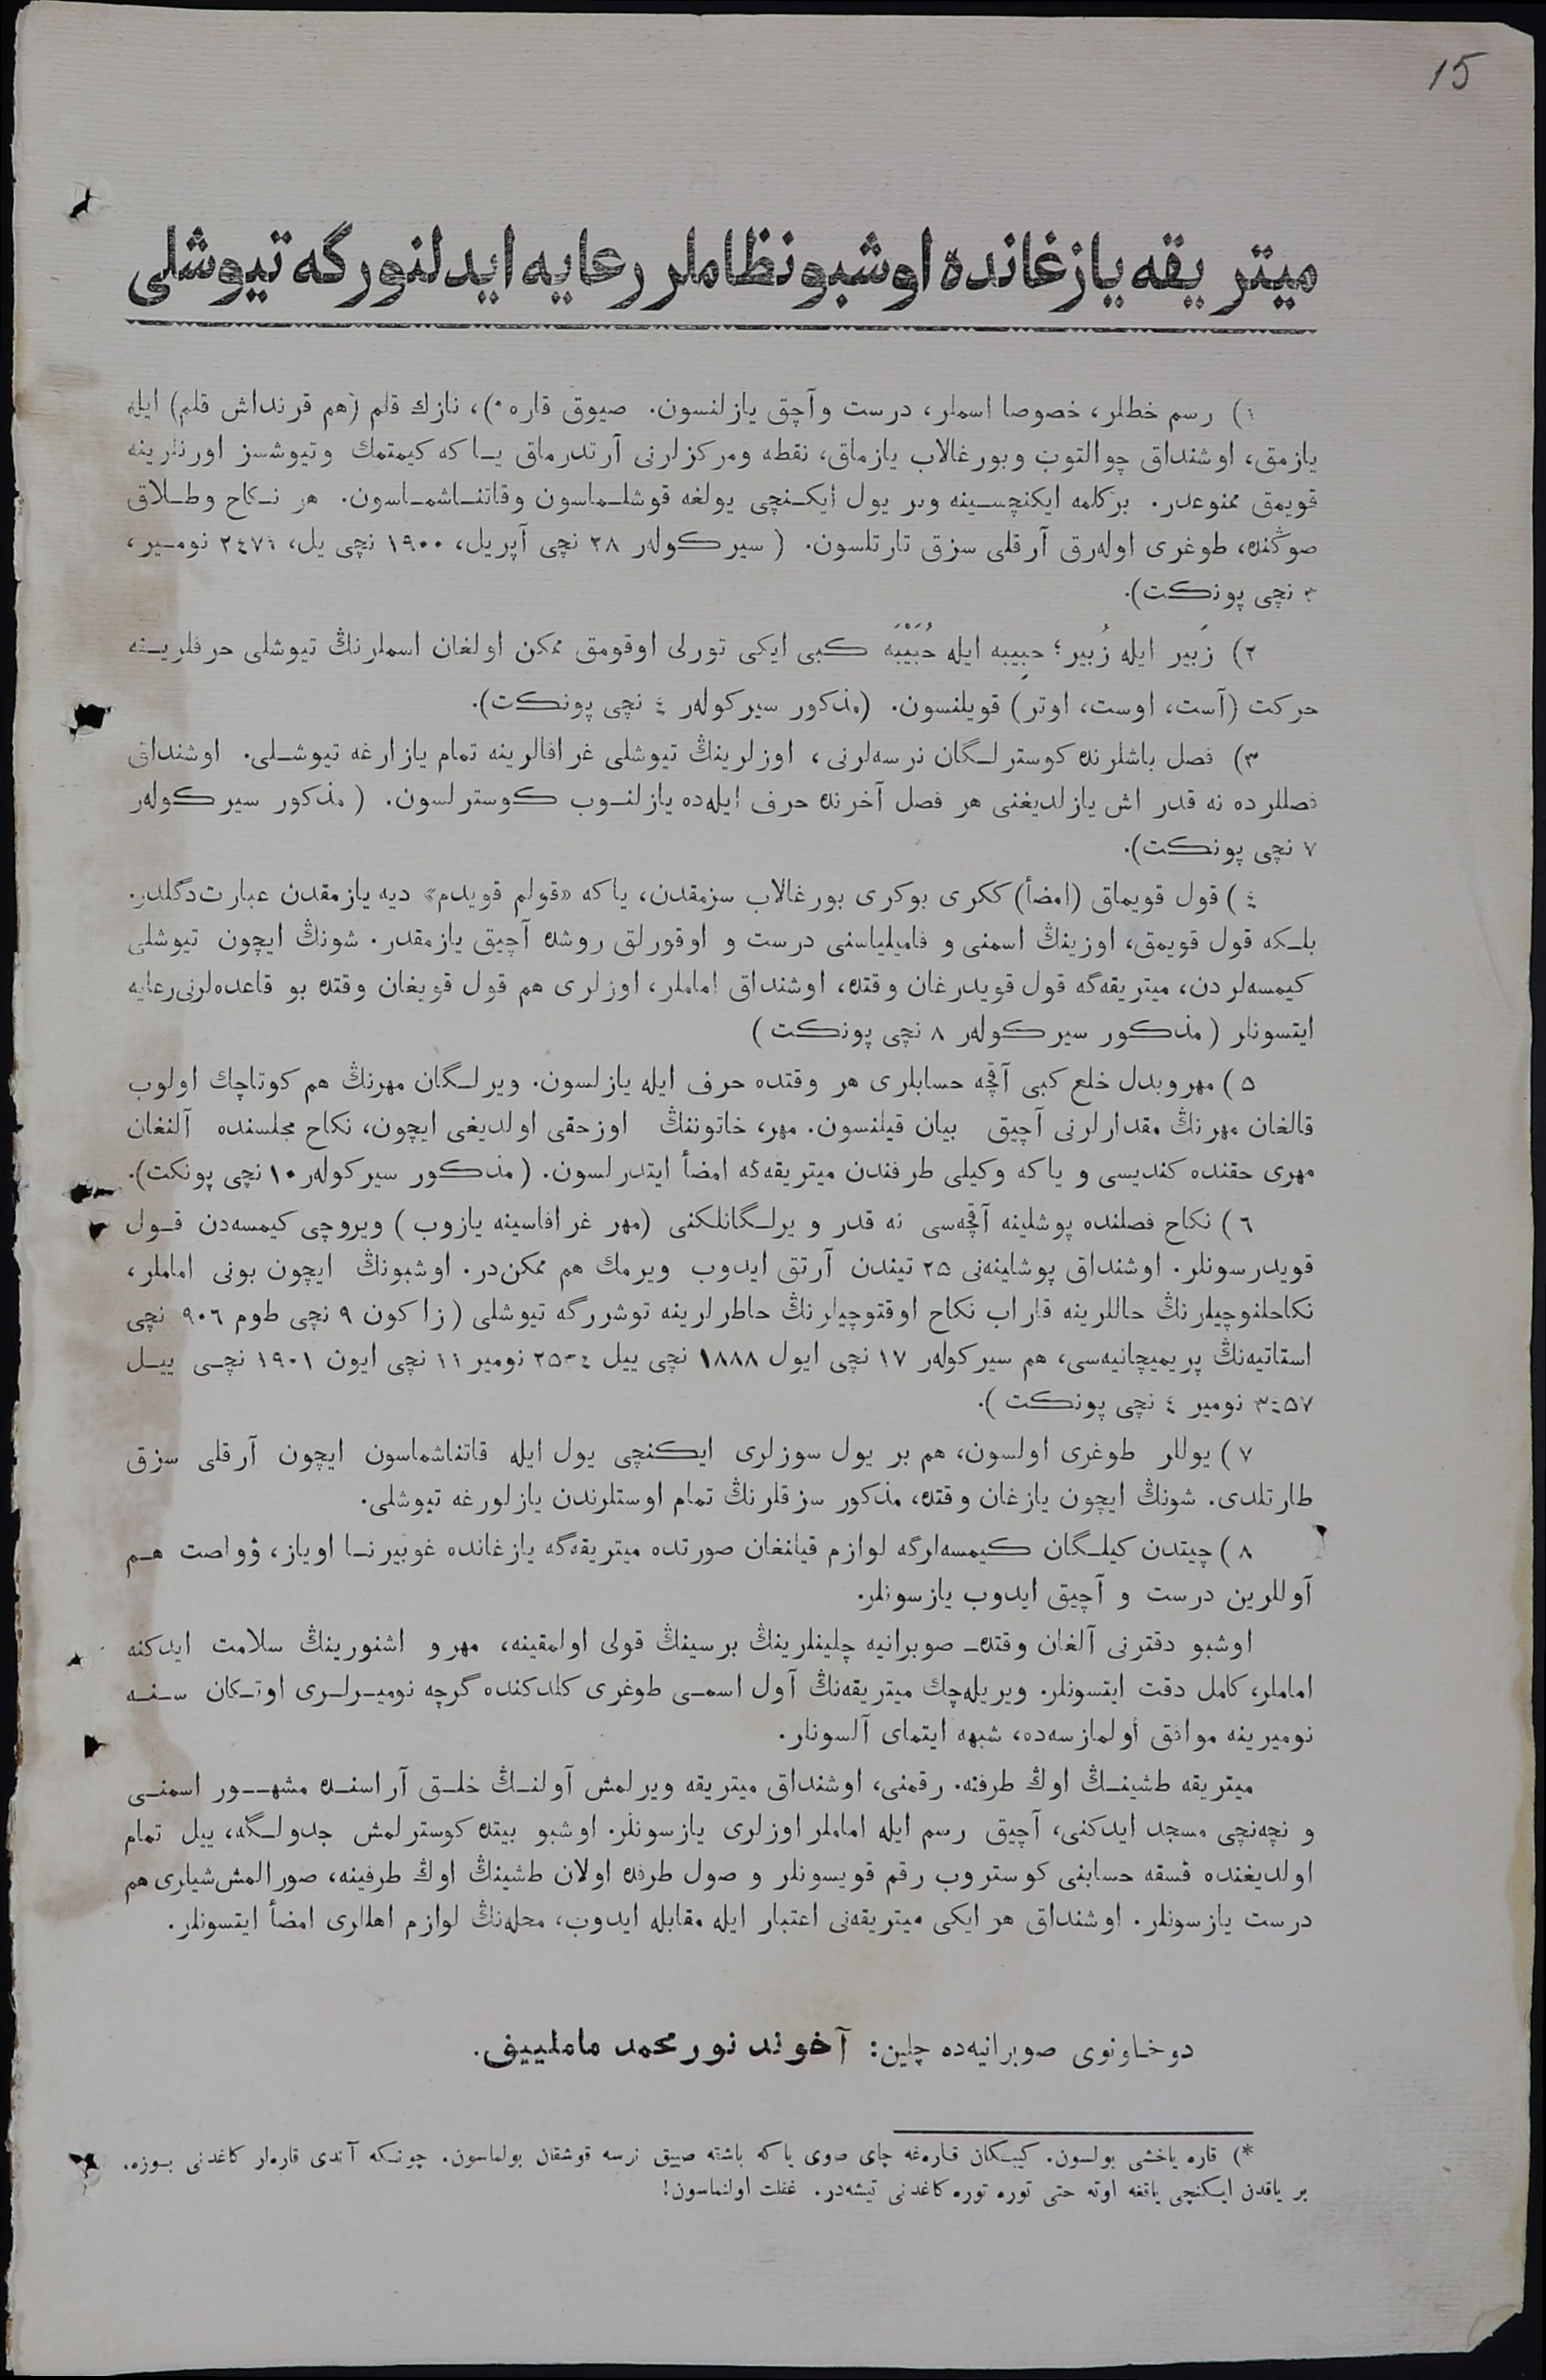 15
ميتريقه يازغانده اوشبو نظاملر رعايه ائدلنورگه تيوشلى
١) رسم خطلر، خصوصا اسملر، درست وآچق يازلنسون. صيوق قاره *)، نازك قلم (هم قرنداش قلم) ايله
يازمق، اوشنداق چوالتوب وبورغالاب يازماق، نقطه ومركزلرنى آرتدرماق يـا كه كيمتمك وتيوشسز اورنلرينه
قويمق ممنوعدر. بركلمه ايكنچسـينه وبر يول ايكـنچى يولغه قوشلـماسون وقاتنـاشمـاسون. هر نـكاح وطـلاق
صوڭنده، طوغرى اوله‌رق آرقلى سزق تارتلسون. (سيركوله‌ر ٢٨ نچى آپريل، ١٩٠٠ نچى يل، ٢٤٧١ نومـير،
٣ نچى پونكت).
٢) زَبير ايله زُبير؛ حبِيبه ايله حُبَيْبَه كبى ايكى تورلى اوقومق ممكن اولغان اسملرنڭ تيوشلى حرفلريـنه
حركت (آست، اوست، اوتر) قويلنسون. (مذكور سيركوله‌ر ٤ نچى پونكت).
٣) فصل باشلرنده كوسترلـگان نرسه‌لرنى، اوزلرينڭ تيوشلى غرافالرينه تمام يازارغه تيوشـلى. اوشنداق
فصللرده نه قدر اش يازلديغنى هر فصل آخرنده حرف ايله‌ده يازلنـوب كوسترلسون. (مذكور سيركوله‌ر
٧ نچى پونكت).
٤) قول قويماق (امضأ) ككرى بوكرى بورغالاب سزمقدن، ياكه «قولم قويدم» ديه يازمقدن عبارت‌دگلدر.
بلـكه قول قويمق، اوزينڭ اسمنى و فاميلياسنى درست و اوقورلق روشده آچيق يازمقدر. شونڭ ايچون تيوشلى
كيمسه‌لردن، ميتريقه‌گه قول قويدرغان وقتده، اوشنداق اماملر، اوزلرى هم قول قويغان وقتده بو قاعده‌لرنى‌رعايه
ايتسونلر (مذكور سيركوله‌ر ٨ نچى پونكت)
٥) مهر وبدل خلع كبى آقچه حسابلرى هر وقتده حرف ايله يازلسون. ويرلـگان مهرنڭ هم كوتاچك اولوب
قالغان مهرنڭ مقدارلرنى آچيق بيان قيلنسون. مهر، خاتوننڭ اوزحقى اولديغى ايچون، نكاح مجلسنده آلنغان
مهرى حقنده كنديسى و ياكه وكيلى طرفندن ميتريقه‌گه امضأ ايتدرلسون. (مذكور سيركوله‌ر ١٠ نچى پونكت).
٦) نكاح فصلنده پوشلينه آقچه‌سى نه قدر ويرلـگانلكنى (مهر غرافاسينه يازوب) ويروچى كيمسه‌دن قـول
قويدرسونلر. اوشنداق پوشلينه‌نى ٢٥ تيندن آرتق ايدوب ويرمك هم ممكن‌در. اوشبونڭ ايچون بونى اماملر،
نكاحلنوچيلرنڭ حاللرينه قاراب نكاح اوقتوچيلرنڭ خاطرلرينه توشررگه تيوشلى (زاكون ٩ نچى طوم ٩٠٦ نچى
استاتيه‌نڭ پريميچانيه‌سى، هم سيركوله‌ر ١٧ نچى ايول ١٨٨٨ نچى ييل ٢٥٣٤ نومير ١١ نچى ايون ١٩٠١ نچـى ييـل
٣٤٥٧ نومير ٤ نچى پونكت).
٧) يوللر طوغرى اولسون، هم بر يول سوزلرى ايكنچى يول ايله قاتناشماسون ايچون آرقلى سزق
طارتلدى. شونڭ ايچون يازغان وقتده، مذكور سزقلرنڭ تمام اوستلرندن يازلورغه تيوشلى.
٨) چيتدن كيلـگان كيمسه‌لرگه لوازم قيلنغان صورتده ميتريقه‌گه يازغانده غوبيرنـا اوياز، ۋولصت هـم
آوللرين درست و آچيق ايدوب يازسونلر.
اوشبو دفترنى آلغان وقتده‌ـ صوبرانيه چلينلرينڭ برسينڭ قولى اولمقينه، مهر و اشنورينڭ سلامت ايدكنه
اماملر، كامل دقت ايتسونلر. ويريله‌چك ميتريقه‌نڭ آول اسمـى طوغرى كلدكنده گرچه نوميـرلـرى اوتـكان سـنـه
نوميرينه موافق اولمازسه‌ده، شبهه ايتماى آلسونلر.
ميتريقه طشينـڭ اوڭ طرفنه. رقمنى، اوشنداق ميتريقه ويرلمش آولنـڭ خلـق آراسنـده مشهـور اسمنـى
و نچه‌نچى مسجد ايدكنى، آچيق رسم ايله اماملر اوزلرى يازسونلر. اوشبو بيتده كوسترلمش جدولـگه، ييل تمام
اولديغنده قسقه حسابنى كوستروب رقم قويسونلر و صول طرفده اولان طشينڭ اوڭ طرفينه، صورالمش‌شيلرى هم
درست يازسونلر. اوشنداق هر ايكى ميتريقه‌نى اعتبار ايله مقابله ايدوب، محله‌نڭ لوازم اهللرى امضأ ايتسونلر.
دوخـاونوى صوبرانيه‌ده چلين: آخوند نورمحمد ماملييف.
*) قاره ياخشى بولسون. كيبـكان قـاره‌غه چاى صوى ياكه باشته صييق نرسه قوشقان بولماسون. چونـكه آندى قاره‌لر كاغدنى بـوزه.
بر ياقدن ايـكنچى ياقغه اوته حتى توره توره كاغدنى تيشه‌در. غفلت اولنماسون!